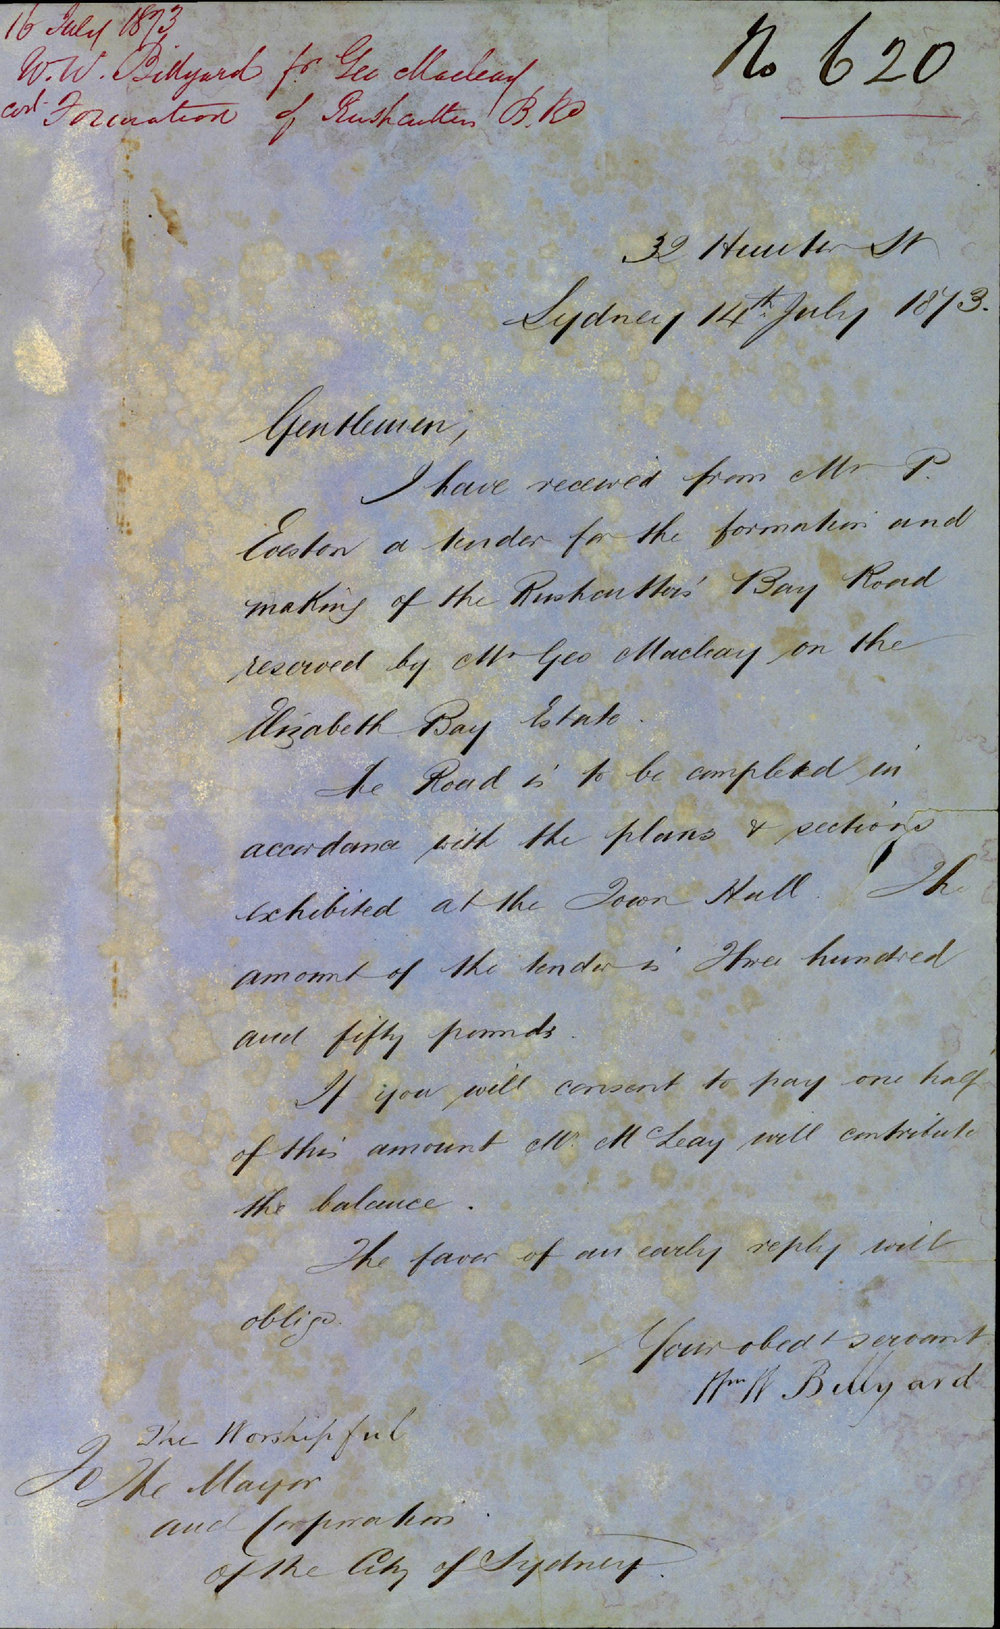 16 July 1873
W. W. Billyard for Geo Macleay
Formation of Rushcutters B. Rd
No 620
32 Hunter St
Sydney 14th July 1873.
Gentlemen,
I have received from Mr P.
Easton a tender for the formation and
making of the Rushcutters' Bay Road
reserved by Mr Geo Macleay on the
Elizabeth Bay Estate.
The Road is to be completed in
accordance with the plans & sections
exhibited at the Town Hall. The
amount of the tender is Three hundred
and fifty pounds.
If you will consent to pay one half
of this amount Mr. McLeay will contribute
the balance.
The favor of an early reply will
oblige.
Your obedt servant
Wm W Billyard
The Worshipful
To The Mayor
and Corporation
of the City of Sydney.